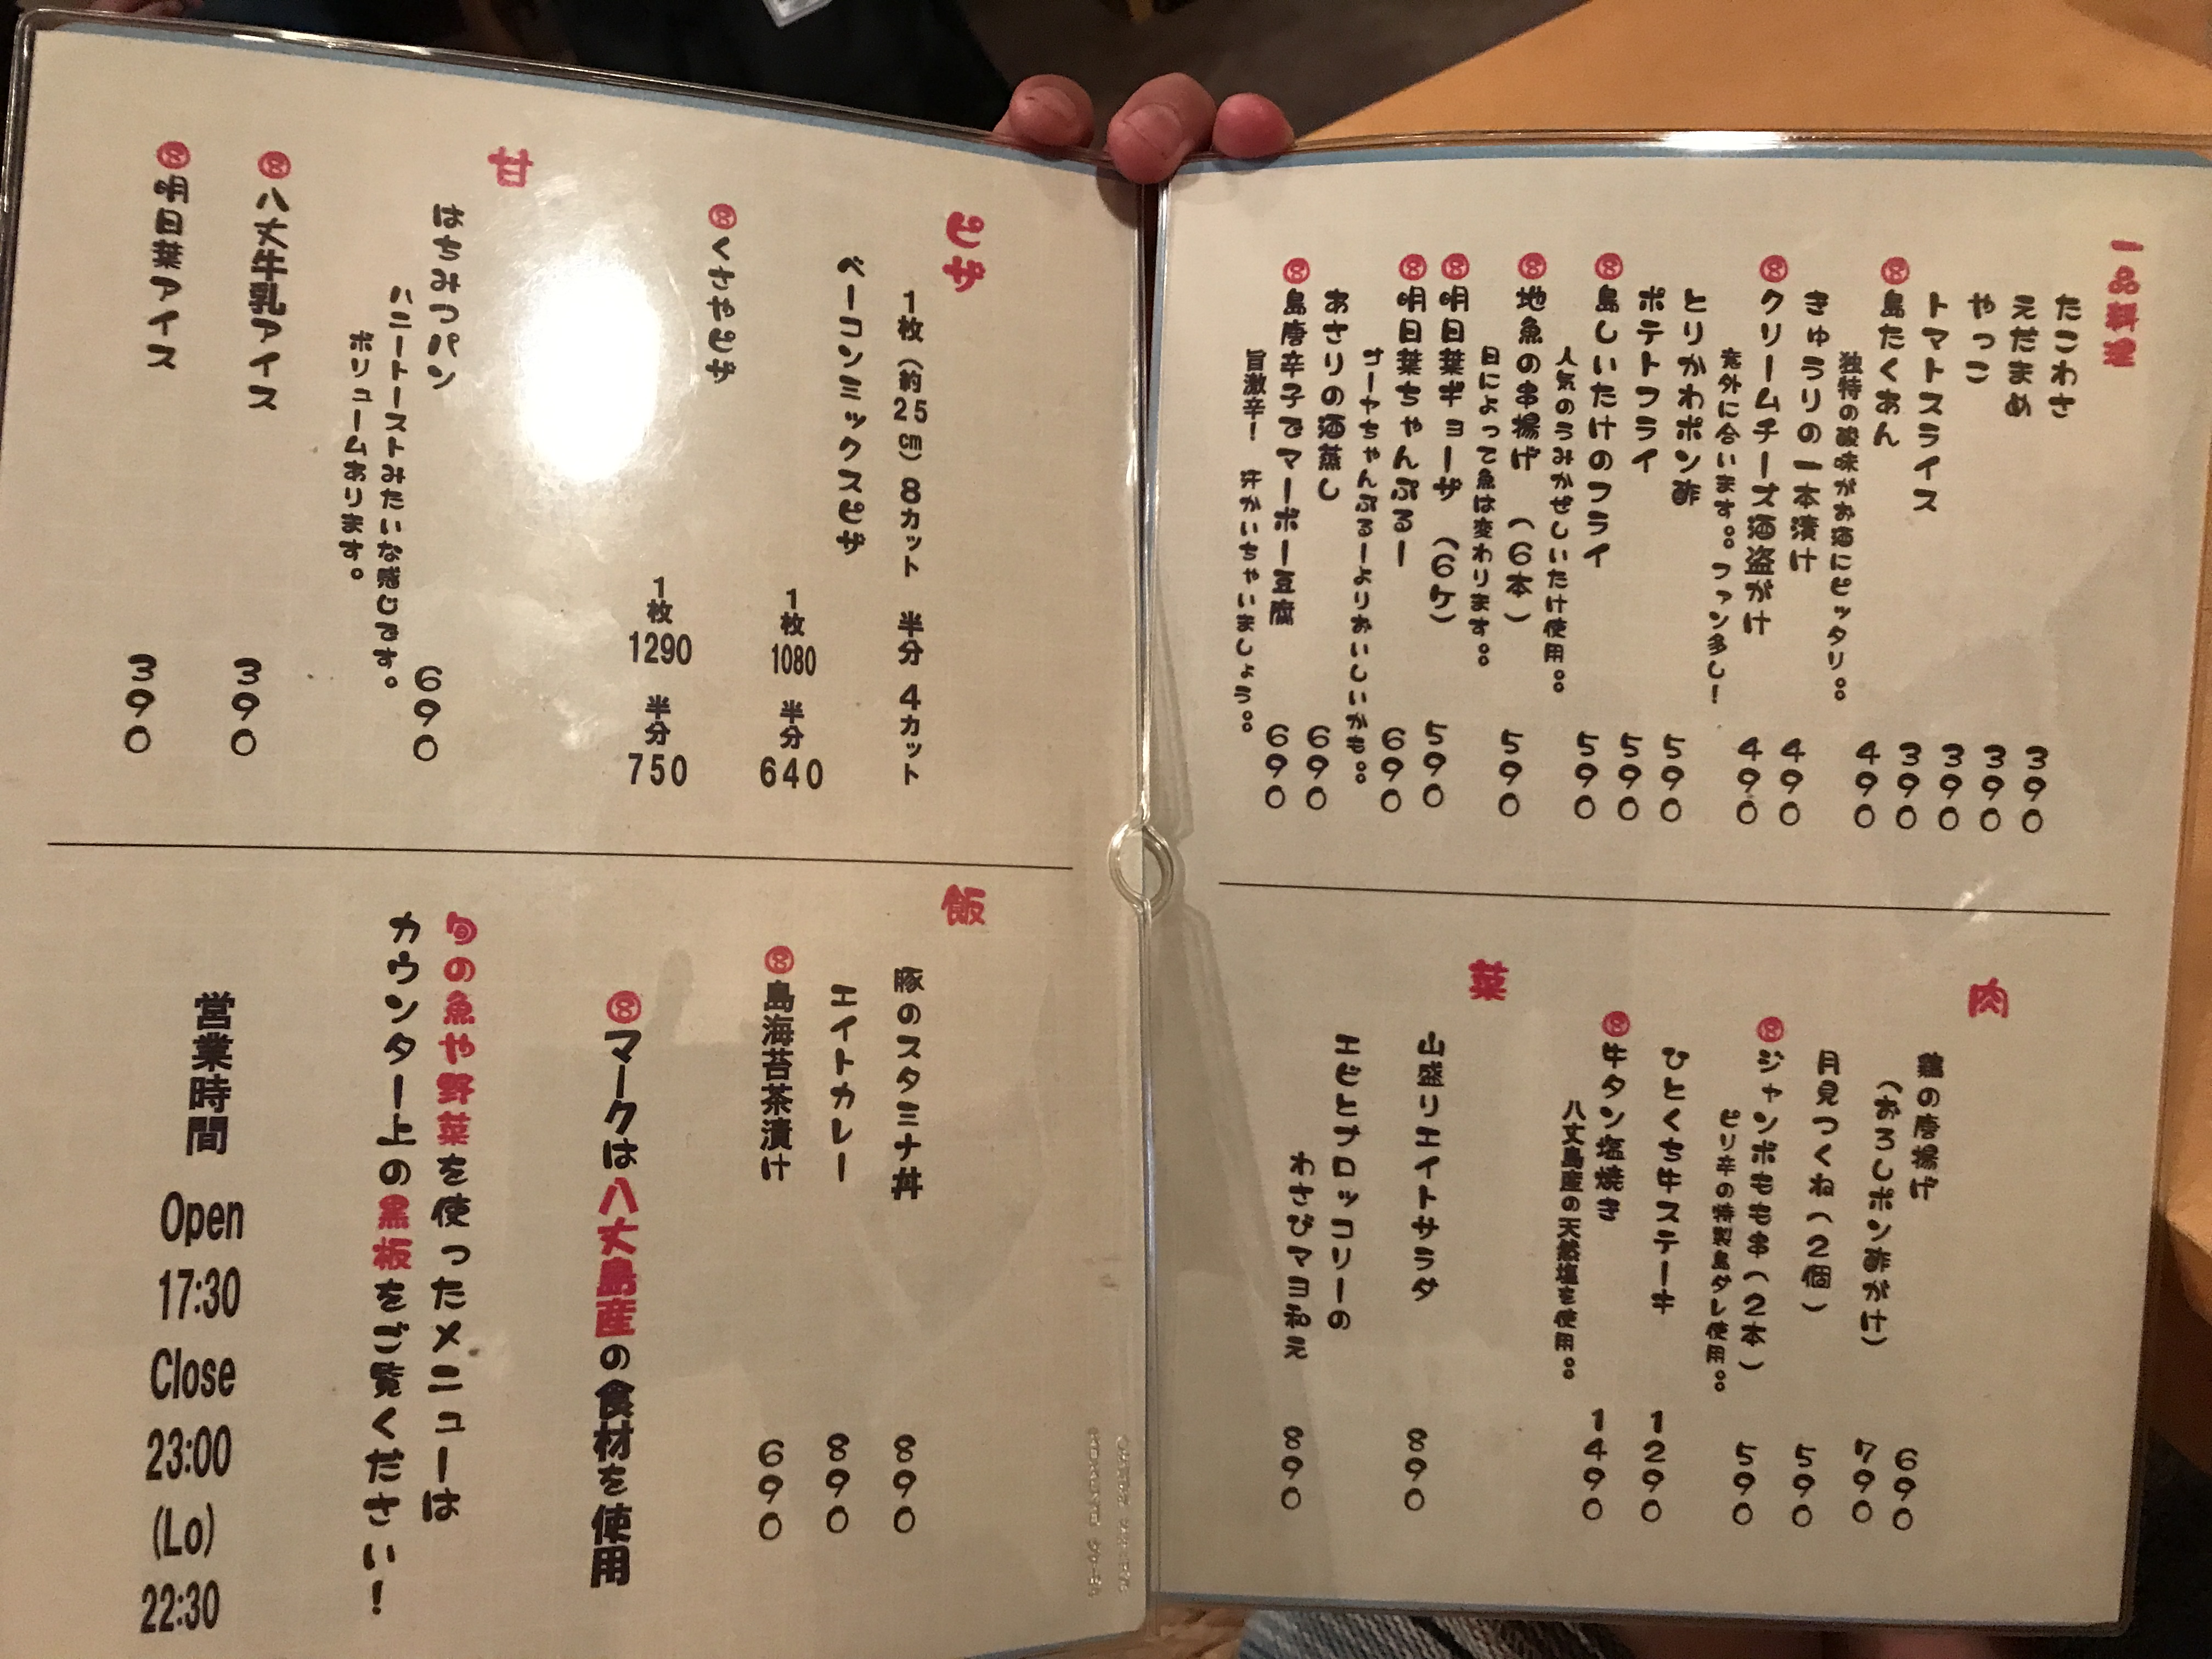 一品料理
たこわさ 390
えだまめ 390
やっこ 390
トマトスライス 390
⑧島たくあん 490
独特の酸味がお酒にピッタリ。。
きゅうりの一本漬け 490
⑧クリームチーズ酒盗がけ 490
意外に合います。。ファン多し!
とりかわポン酢 590
ポテトフライ 590
⑧島しいたけのフライ 590
人気のうみかぜしいたけ使用。。
⑧地魚の串揚げ (6本) 590
日によって魚は変わります。。
⑧明日葉ギョーザ (6ケ) 590
⑧明日葉ちゃんぷるー 690
ゴーヤちゃんぷるーよりおいしいかも。。
あさりの酒蒸し 690
⑧島唐辛子でマーボー豆腐 690
旨激辛! 汗かいちゃいましょう。。
肉
鶏の唐揚げ 690
(おろしポン酢がけ) 790
月見つくね(2個) 590
⑧ジャンボもも串(2本) 590
ピリ辛の特製島ダレ使用。。
ひとくち牛ステーキ 1290
⑧牛タン塩焼き 1490
八丈島産の天然塩を使用。。
菜
山盛りエイトサラダ 890
エビとブロッコリーの
わさびマヨ和え 890
ピザ
1枚(約25㎝)8カット 半分 4カット
ベーコンミックスピザ
1枚 1080 半分 640
⑧くさやピザ
1枚 1290 半分 750
甘
はちみつパン 690
ハニートーストみたいな感じです。
ボリュームあります。
⑧八丈牛乳アイス 390
⑧明日葉アイス 390
飯
豚のスタミナ丼 890
エイトカレー 890
⑧島海苔茶漬け 690
⑧マークは八丈島産の食材を使用
旬の魚や野菜を使ったメニューは
カウンター上の黒板をご覧ください!
営業時間 Open 17:30 Close 23:00 (Lo) 22:30